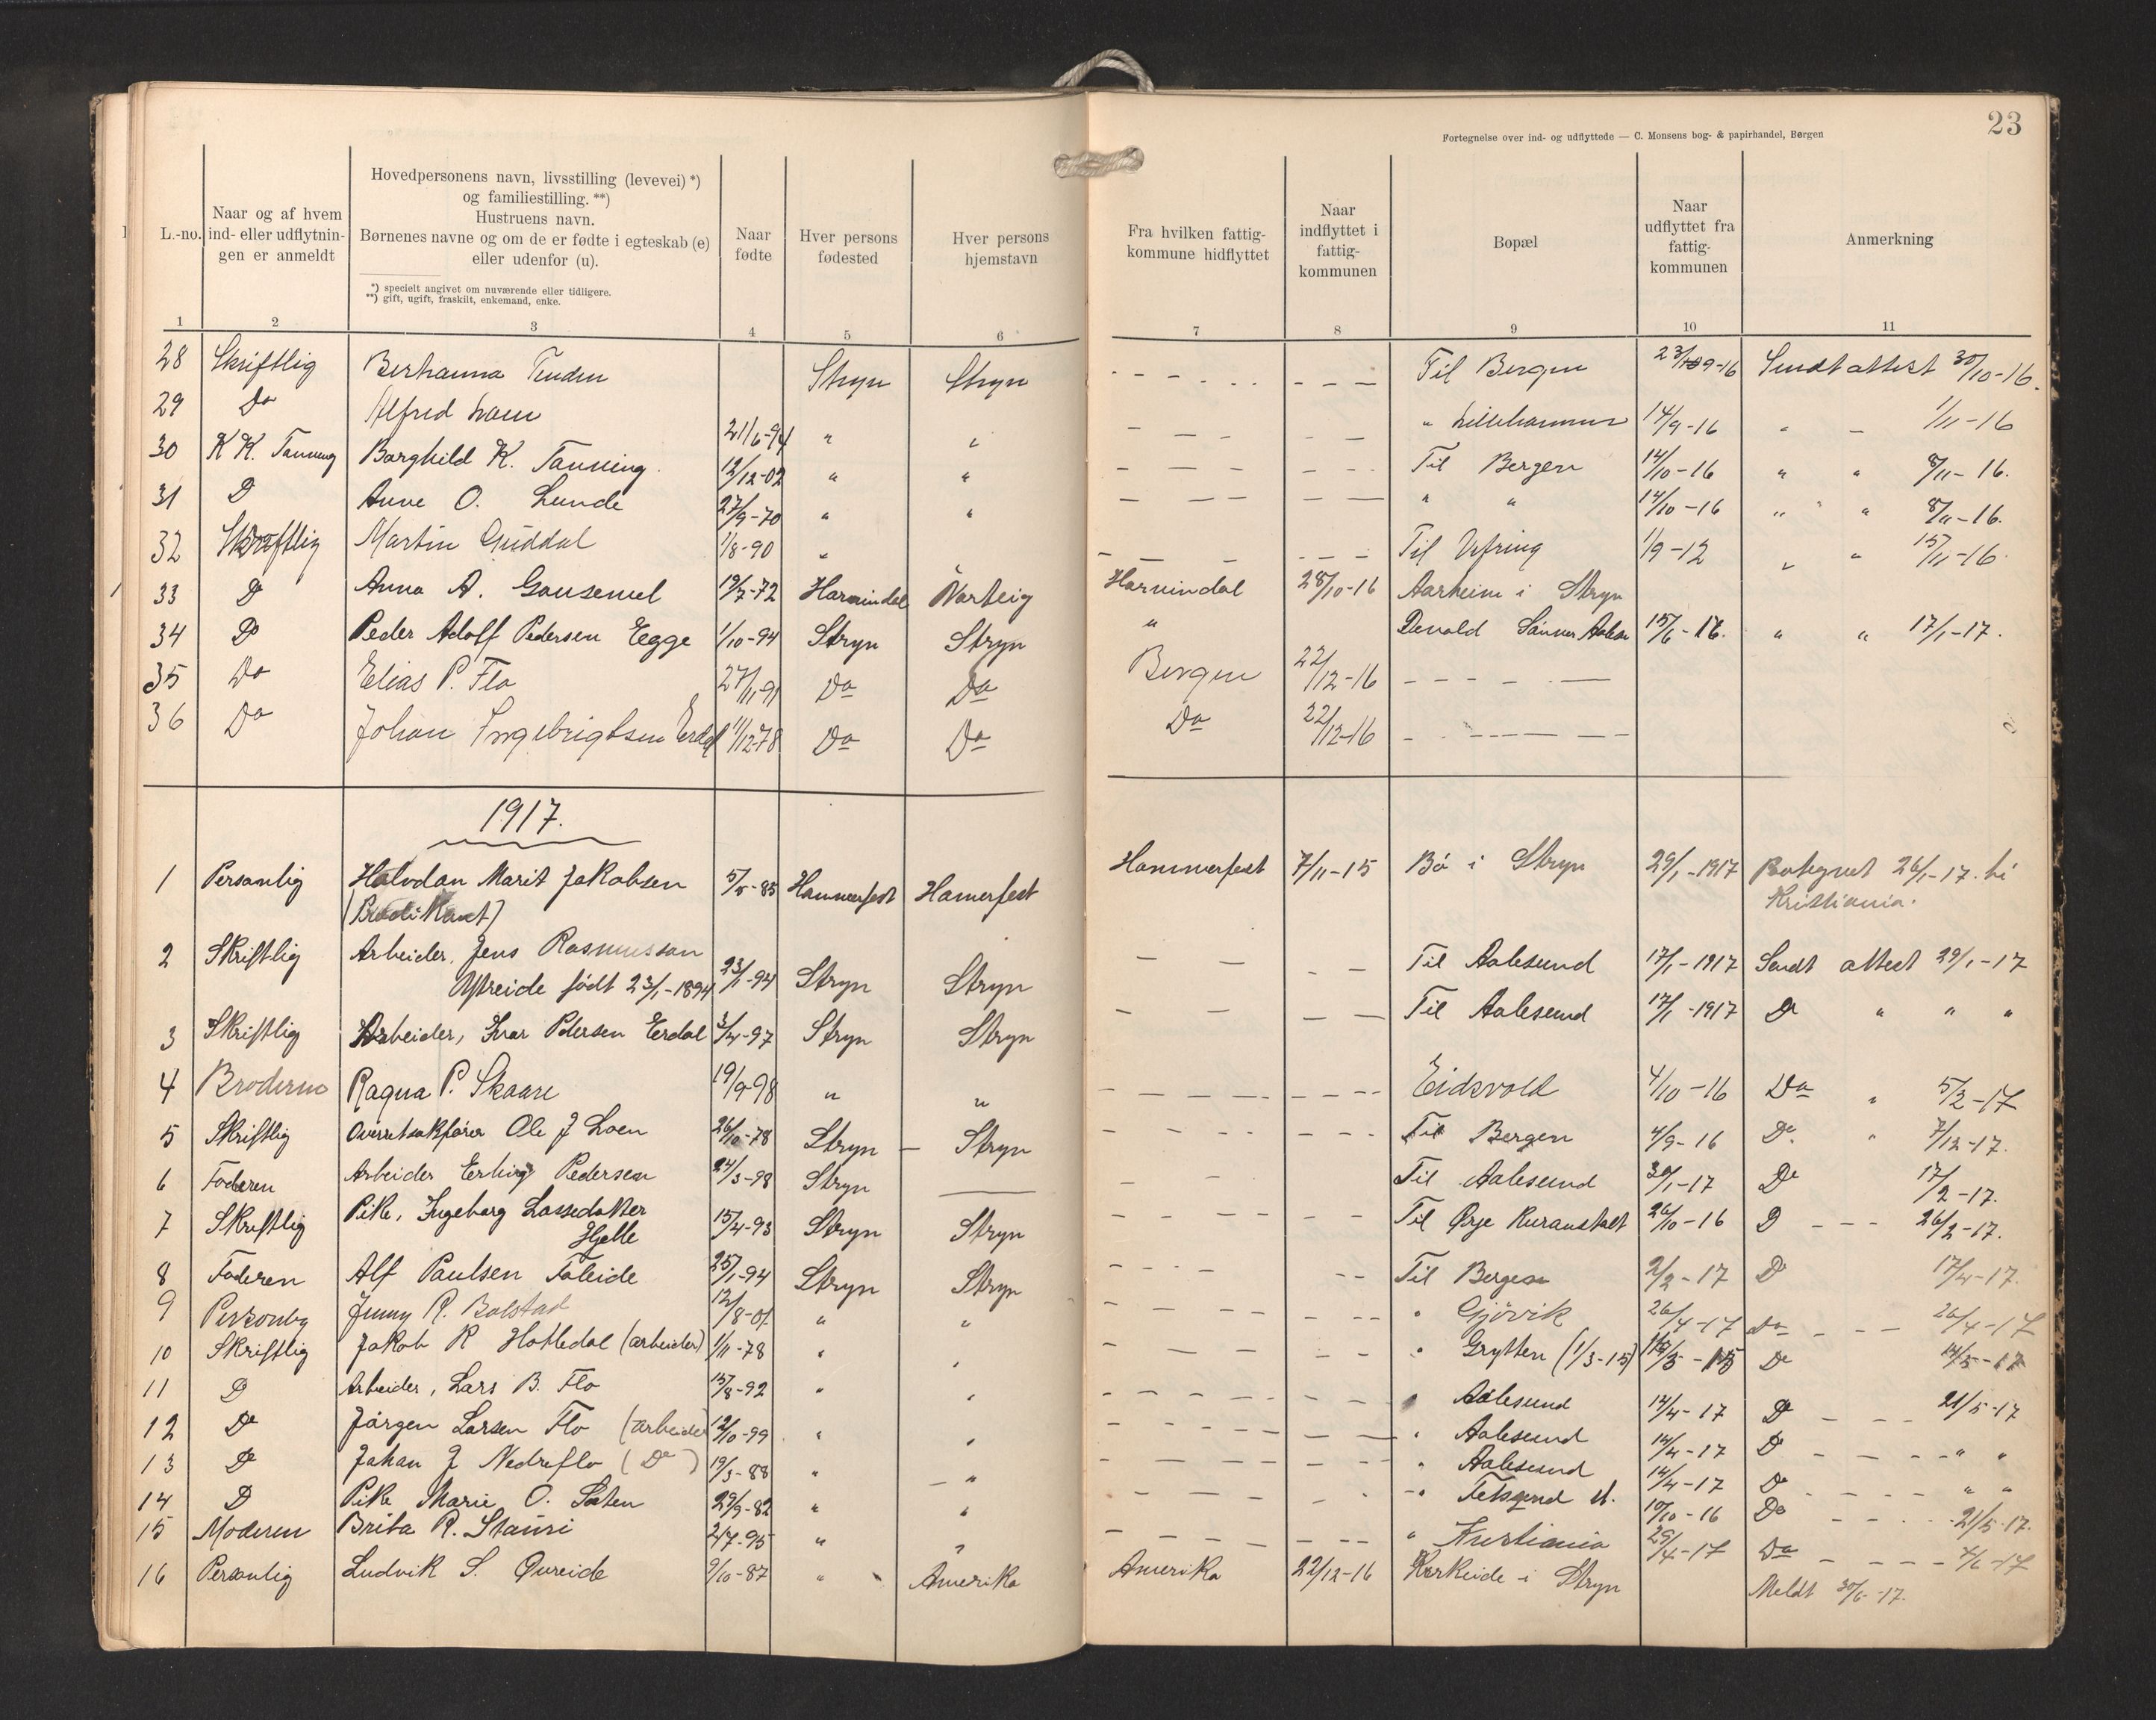 23
Fortegnelse over ind- og udflyttede — C. Monsens bog- & papirhandel, Bergen
L.-no.
Naar og af hvem
ind- eller udflytnin-
gen er anmeldt
Hovedpersonens navn, livsstilling (levevei) *)
og familiestilling. **)
Hustruens navn.
Børnenes navne og om de er fødte i egteskab (e)
eller udenfor (u).
*) specielt angivet om nuværende eller tidligere.
**) gift, ugift, fraskilt, enkemand, enke.
Naar
fødte
Hver persons
fødested
Hver persons
hjemstavn
Fra hvilken fattig-
kommune hidflyttet
Naar
indflyttet i
fattig-
kommunen
Bopæl
Naar
udflyttet fra
fattig-
kommunen
Anmerkning
1 2 3 4 5 6 7 8 9 10 11
28 Skriftlig Berhanna Tenden Stryn Stryn Til Bergen Sendt attest 30/10-16.
29 Do Alfred Loen 21/6-94 " " " Lillehammer 14/9-16 " " 1/11-16
30 K K. Tonning Borghild K. Tonning. 12/12-02 " " Til Bergen 14/10-16 " " 8/11-16.
31 D Anne O. Lunde 27/9-70 " " " " 14/10-16 " " 8/11-16.
32 Skriftlig Martin Guddal 1/8-90 " Til Ufring 1/9-12 " " 15/11-16.
33 D Anna A. Gausemel 19/7-72 Hornindal Varteig Hornindal 28/10-16 Aarheim i Stryn
34 Do Peder Adolf Pedersen Eegge 1/10-94 Stryn Stryn " Devold 15/6-16. " " 17/1-17.
35 Do Elias P. Flo 27/11 91 Do Do Bergen 22/12-16
36 Do Johan Ingebrigtsen Erdal 11/12-78 Do Do Do 22/12-16
1917.
1 Personlig Halvdan Marit Jakobsen 5/5-85 Hammerfest Hamerfest Hammerfest 7/11-15 Bö i Stryn 29/1-1917 26/1-17. ti
Kristiania.
2 Skriftlig Arbeider, Jens Rasmussan
Ystreide födt 23/1-1894 23/1-94 Stryn Stryn Til Aalesund 17/1-1917 Sendt attest 29/1-17
3 Skriftlig Arbeider, Ivar Pedersen Erdal 3/4-97 Stryn Stryn Til Aalesund 17/1-1917 D " " "
4 Broderen Ragna P. Skaare 19/9-98 " " Eidsvold 4/10-16 Do " 5/2-17
5 Skriftlig Overretsakförer Ole J Loen 26/10-78 Stryn — Stryn Til Bergen 4/9-16 Do " 7/12-17.
6 Foderen Arbeider Erling Pedersen 24/3-98 Stryn Til Aalesund 30/1-17 Do 17/2-17.
7 Skriftlig Pike, Ingeborg Lassedatter
Hjelle 15/4-93 Stryn Stryn Til Ørje Kuranstalt 26/10-16 D 26/2-17.
8 Faderen Alf Paulsen Faleide 25/1-94 Stryn Stryn Til Bergen 2/2-17 D 17/4-17.
9 Personlig Jenny R. Bolstad 12/8-01 " " " Gjövik 26/4-17 Do 26/4-17
10 Skriftlig Jakob R Holledal (arbeider) 1/11-78 " " " Grytten (1/3-15) D 14/5-17
11 D Arbeider, Lars B. Flo 15/8-92 " " Aalesund 14/4-17 D 21/5-17
12 Do Jörgen Larsen Flo (arbeider 12/10-99 " " " Aalesund 14/4-17 D " "
13 Do Johan J Nedreflo (Do) 19/3-88 " " " Aalesund 14/4-17 D " "
14 D Pike Marie O. Sæten 29/9-82 " " 19/10-16 Do 21/5-17.
15 Moderen Brita R. Stauri 2/7-95 " " " Kristiania 29/4-17 Do 4/6-17
16 Personlig Ludvik S. Øvreide 9/10-87 " Amerika Amerika 22/12-16 i Stryn Meldt 30/6-17.